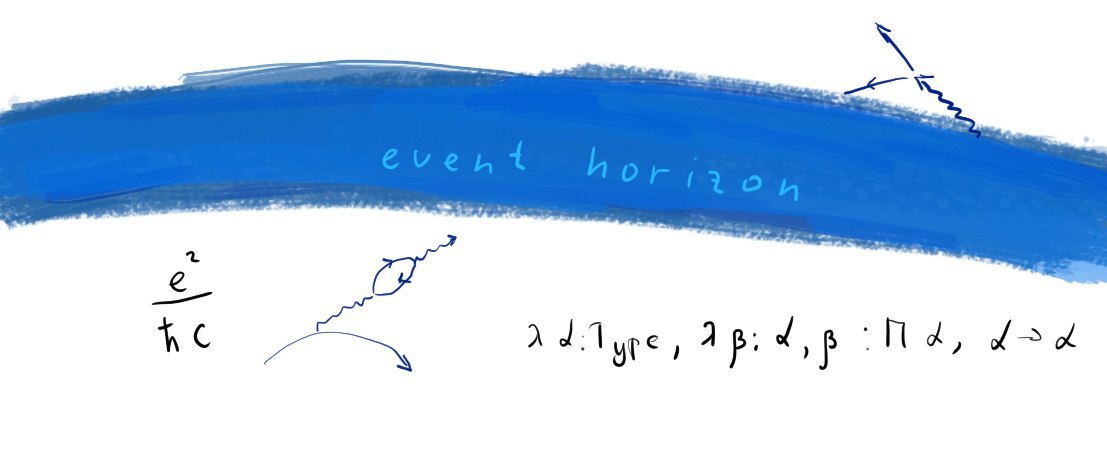 event horizon
e²
ħ c
λ α:Type, λ β: α, β : Π α, α → α